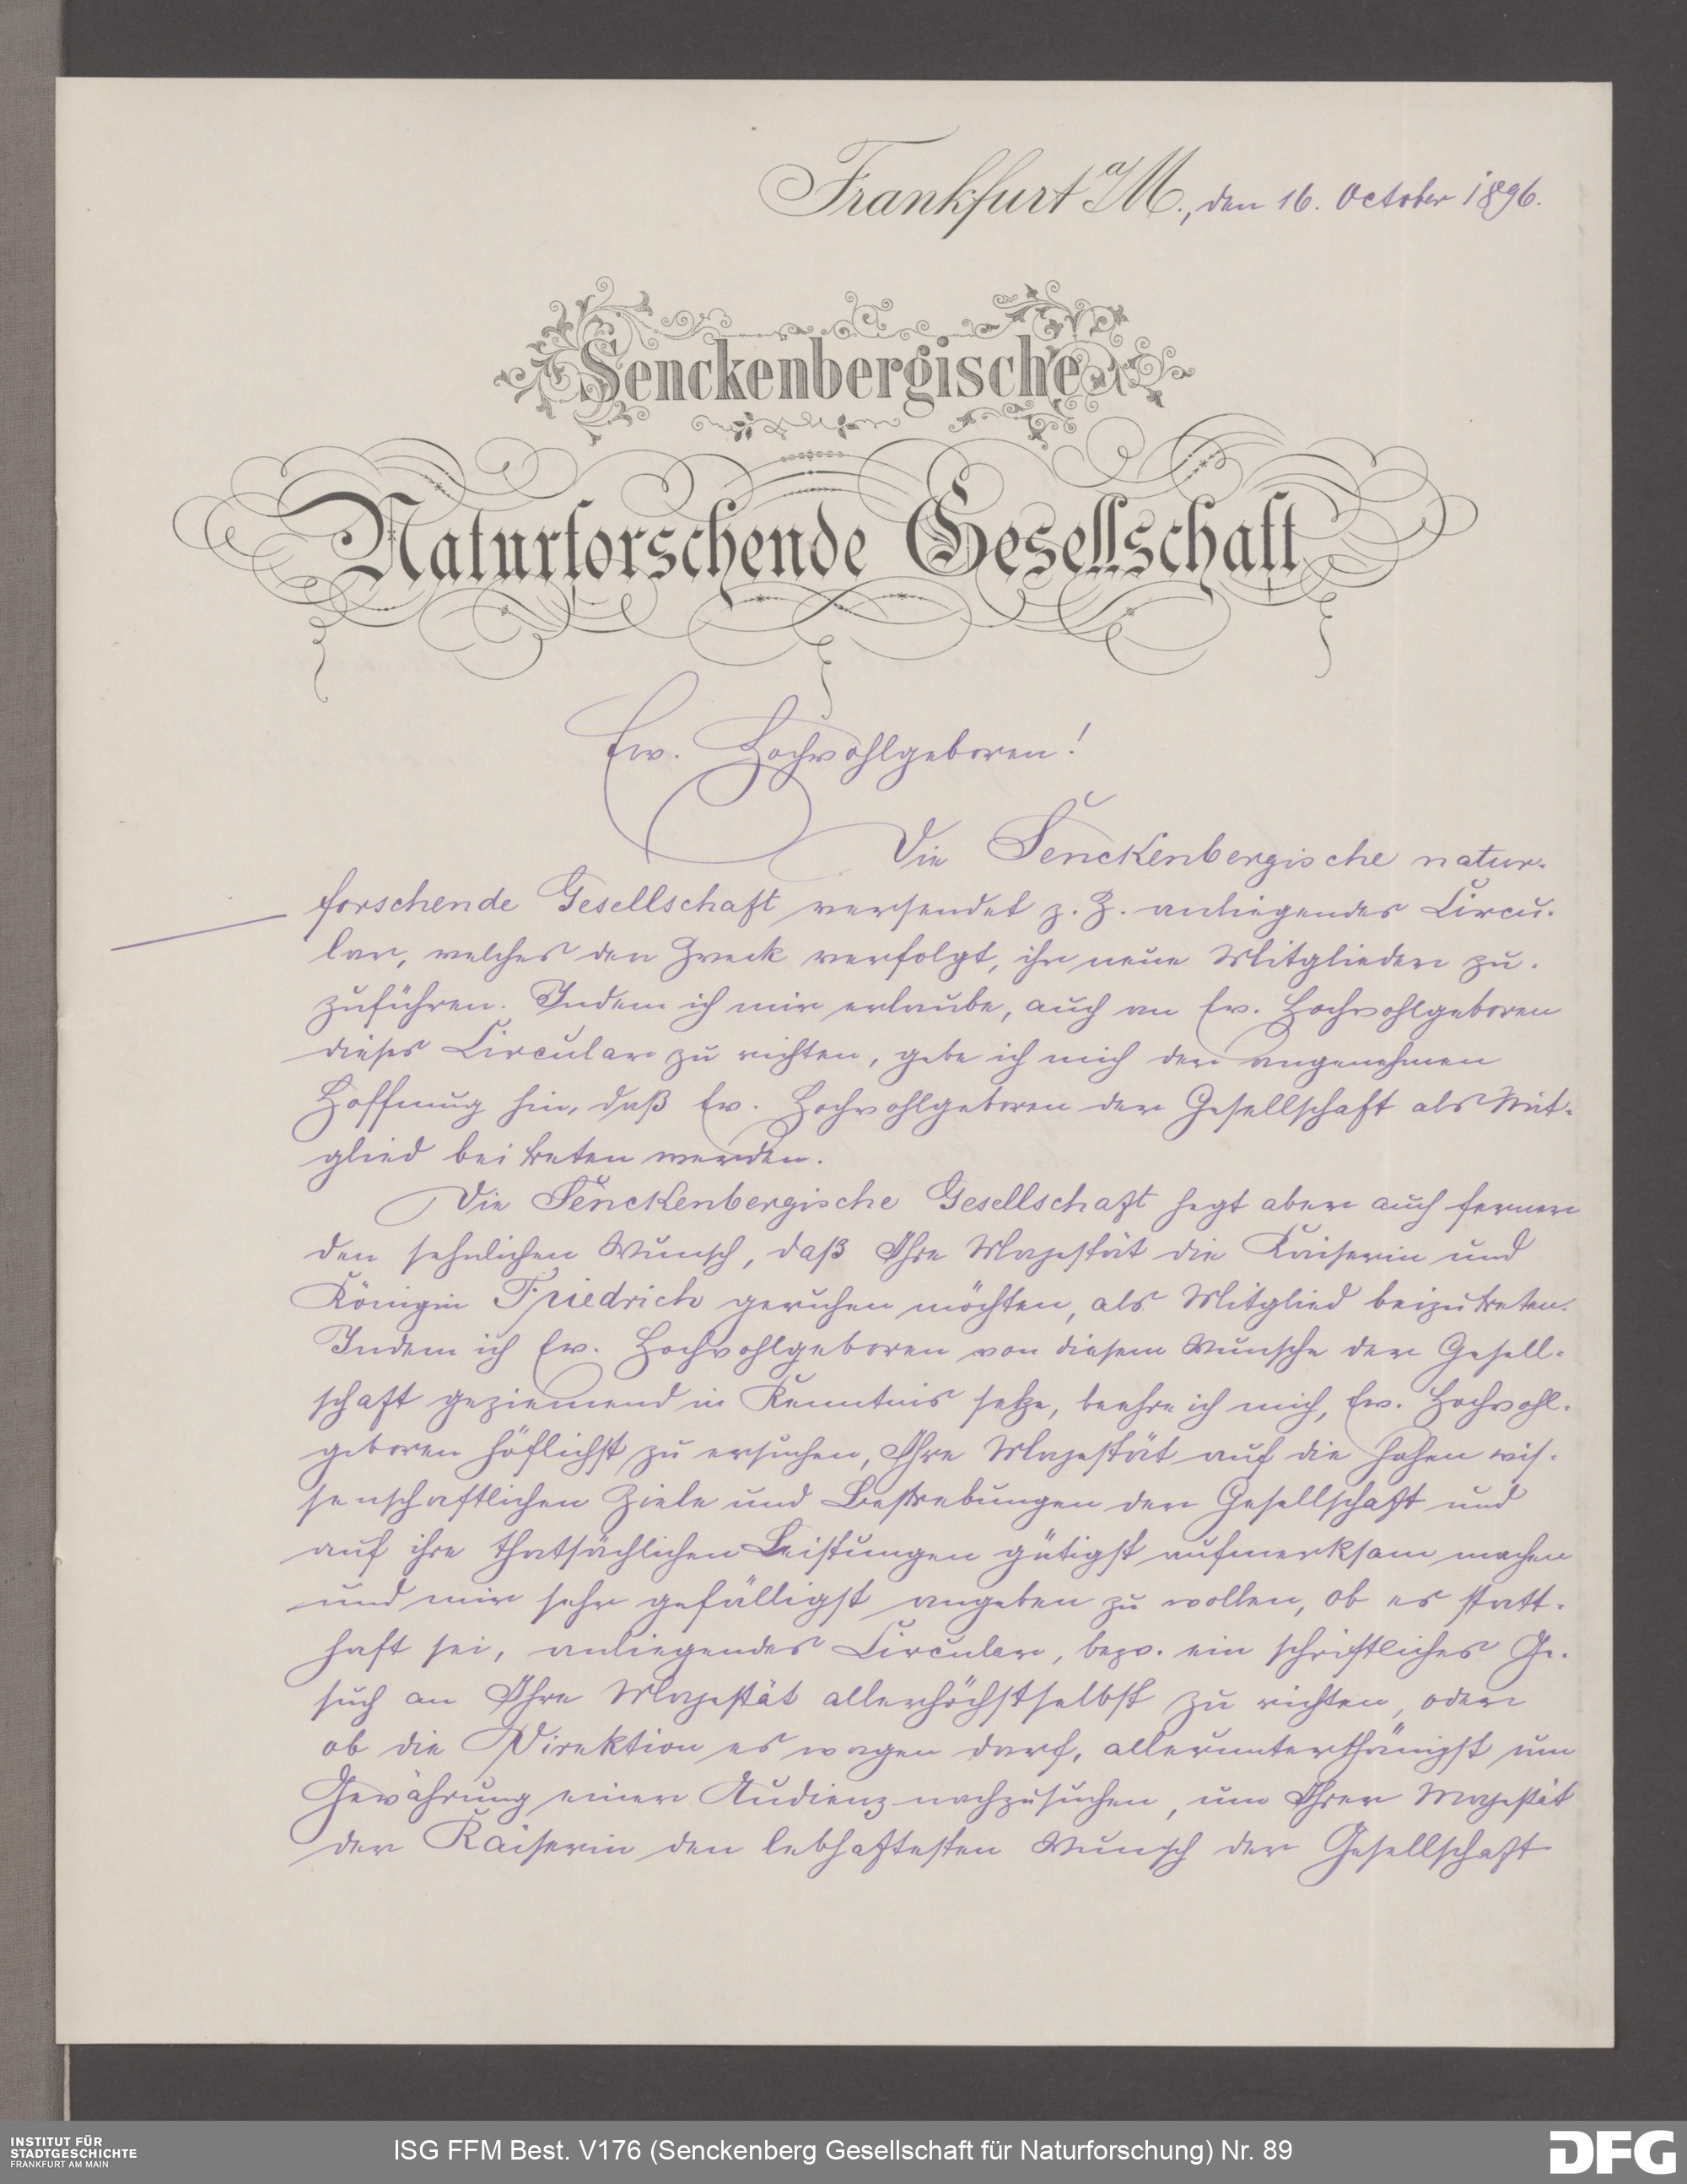 Frankfurt a/M., den 16. October 1896.
Senckenbergische
Naturforschende Gesellschaft
Ew. Hochwohlgeboren!
Die Senckenbergische natur-
forschende Gesellschaft versendet z. Z. anliegendes Circu-
lar, welches den Zweck verfolgt, ihr neue Mitglieder zu-
zuführen. Indem ich mir erlaube, auch an Ew. Hochwohlgeboren
dieses Circular zu richten, gebe ich mich der angenehmen
Hoffnung hin, daß Ew. Hochwohlgeboren der Gesellschaft als Mit-
glied beitreten werden.
Die Senckenbergische Gesellschaft hegt aber auch ferner
den sehnlichen Wunsch, daß Ihre Majestät die Kaiserin und
Königin Friedrich geruhen möchten, als Mitglied beizutreten.
Indem ich Ew. Hochwohlgeboren von diesem Wunsche der Gesell-
schaft geziemend in Kenntnis setze, beehre ich mich, Ew. Hochwohl-
geboren höflichst zu ersuchen, Ihre Majestät auf die hohen wis-
senschaftlichen Ziele und Bestrebungen der Gesellschaft und
auf ihre thatsächlichen Leistungen gütigst aufmerksam machen
und mir sehr gefälligst angeben zu wollen, ob es statt-
haft sei, anliegendes Circular, bezw. ein schriftliches Ge-
such an Ihre Majestät allerhöchstselbst zu richten, oder
ob die Direktion es wagen darf, allerunterthänigst um
Gewährung einer Audienz nachzusuchen, um Ihrer Majestät
der Kaiserin den lebhaftesten Wunsch der Gesellschaft
INSTITUT FÜR
STADTGESCHICHTE
FRANKFURT AM MAIN
ISG FFM Best. V176 (Senckenberg Gesellschaft für Naturforschung) Nr. 89
DFG